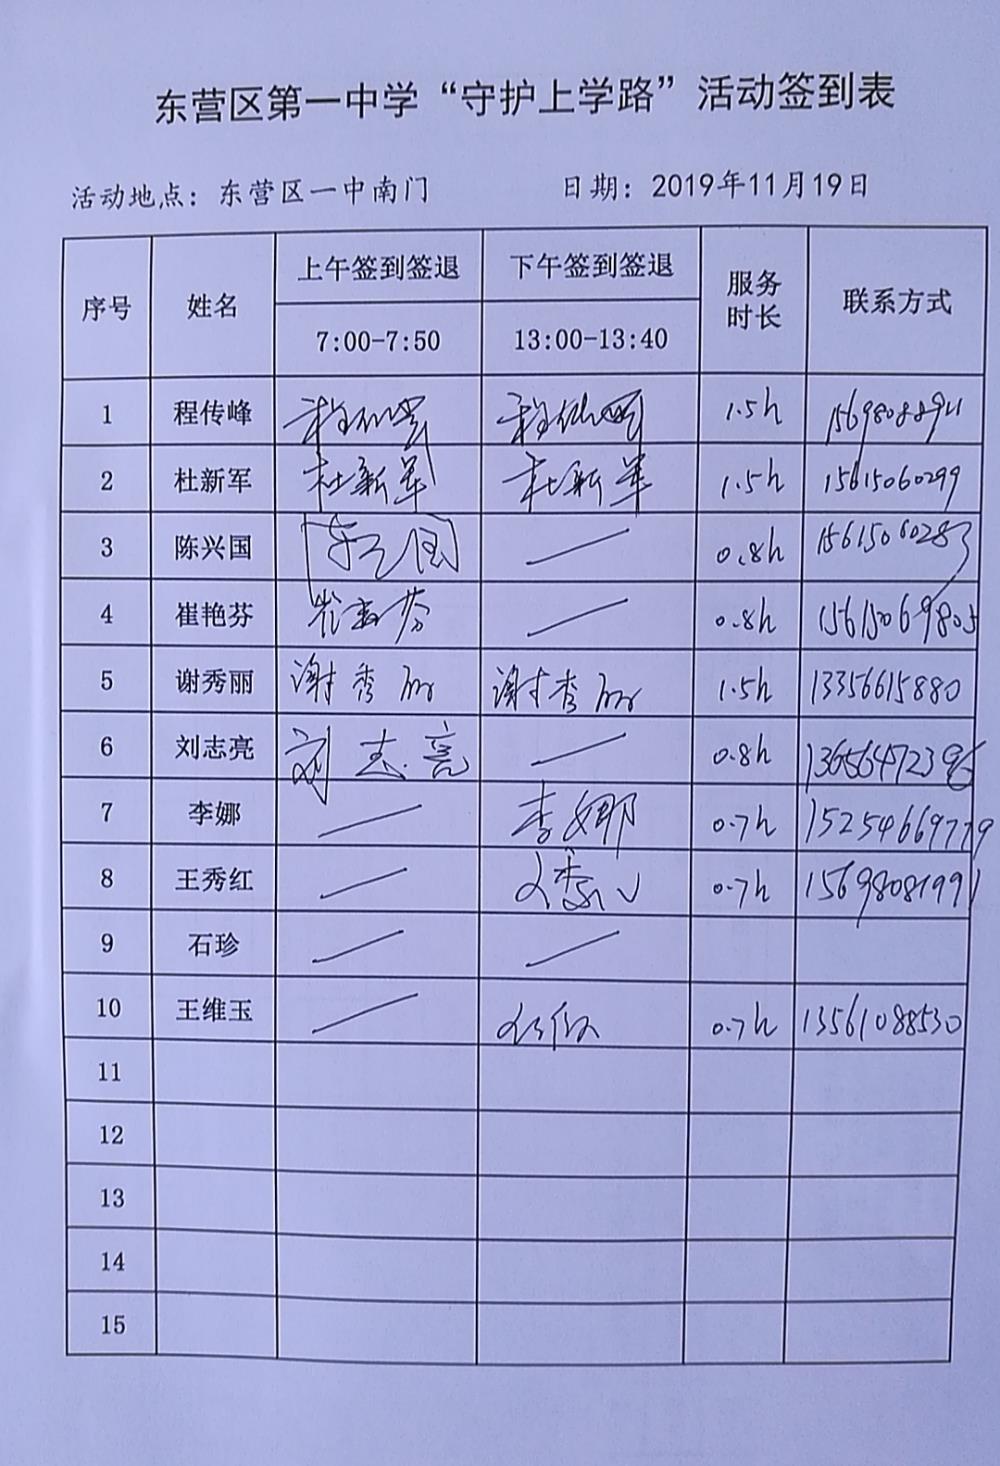 东营区第一中学“守护上学路”活动签到表
活动地点：东营区一中南门 日期：2019年11月19日
序号 姓名 上午签到签退 7:00-7:50 下午签到签退 13:00-13:40 服务时长 联系方式
1 程传峰 程传峰 程传峰 1.5h 15698088911
2 杜新军 杜新军 杜新军 1.5h 15615060299
3 陈兴国 陈兴国 — 0.8h 15615060283
4 崔艳芬 崔艳芬 — 0.8h 15615069805
5 谢秀丽 谢秀丽 谢秀丽 1.5h 13356615880
6 刘志亮 刘志亮 — 0.8h 13656472396
7 李娜 — 李娜 0.7h 15254669779
8 王秀红 — 0.7h 15698081991
9 石珍 — —
10 王维玉 — 0.7h 13561088530
11
12
13
14
15